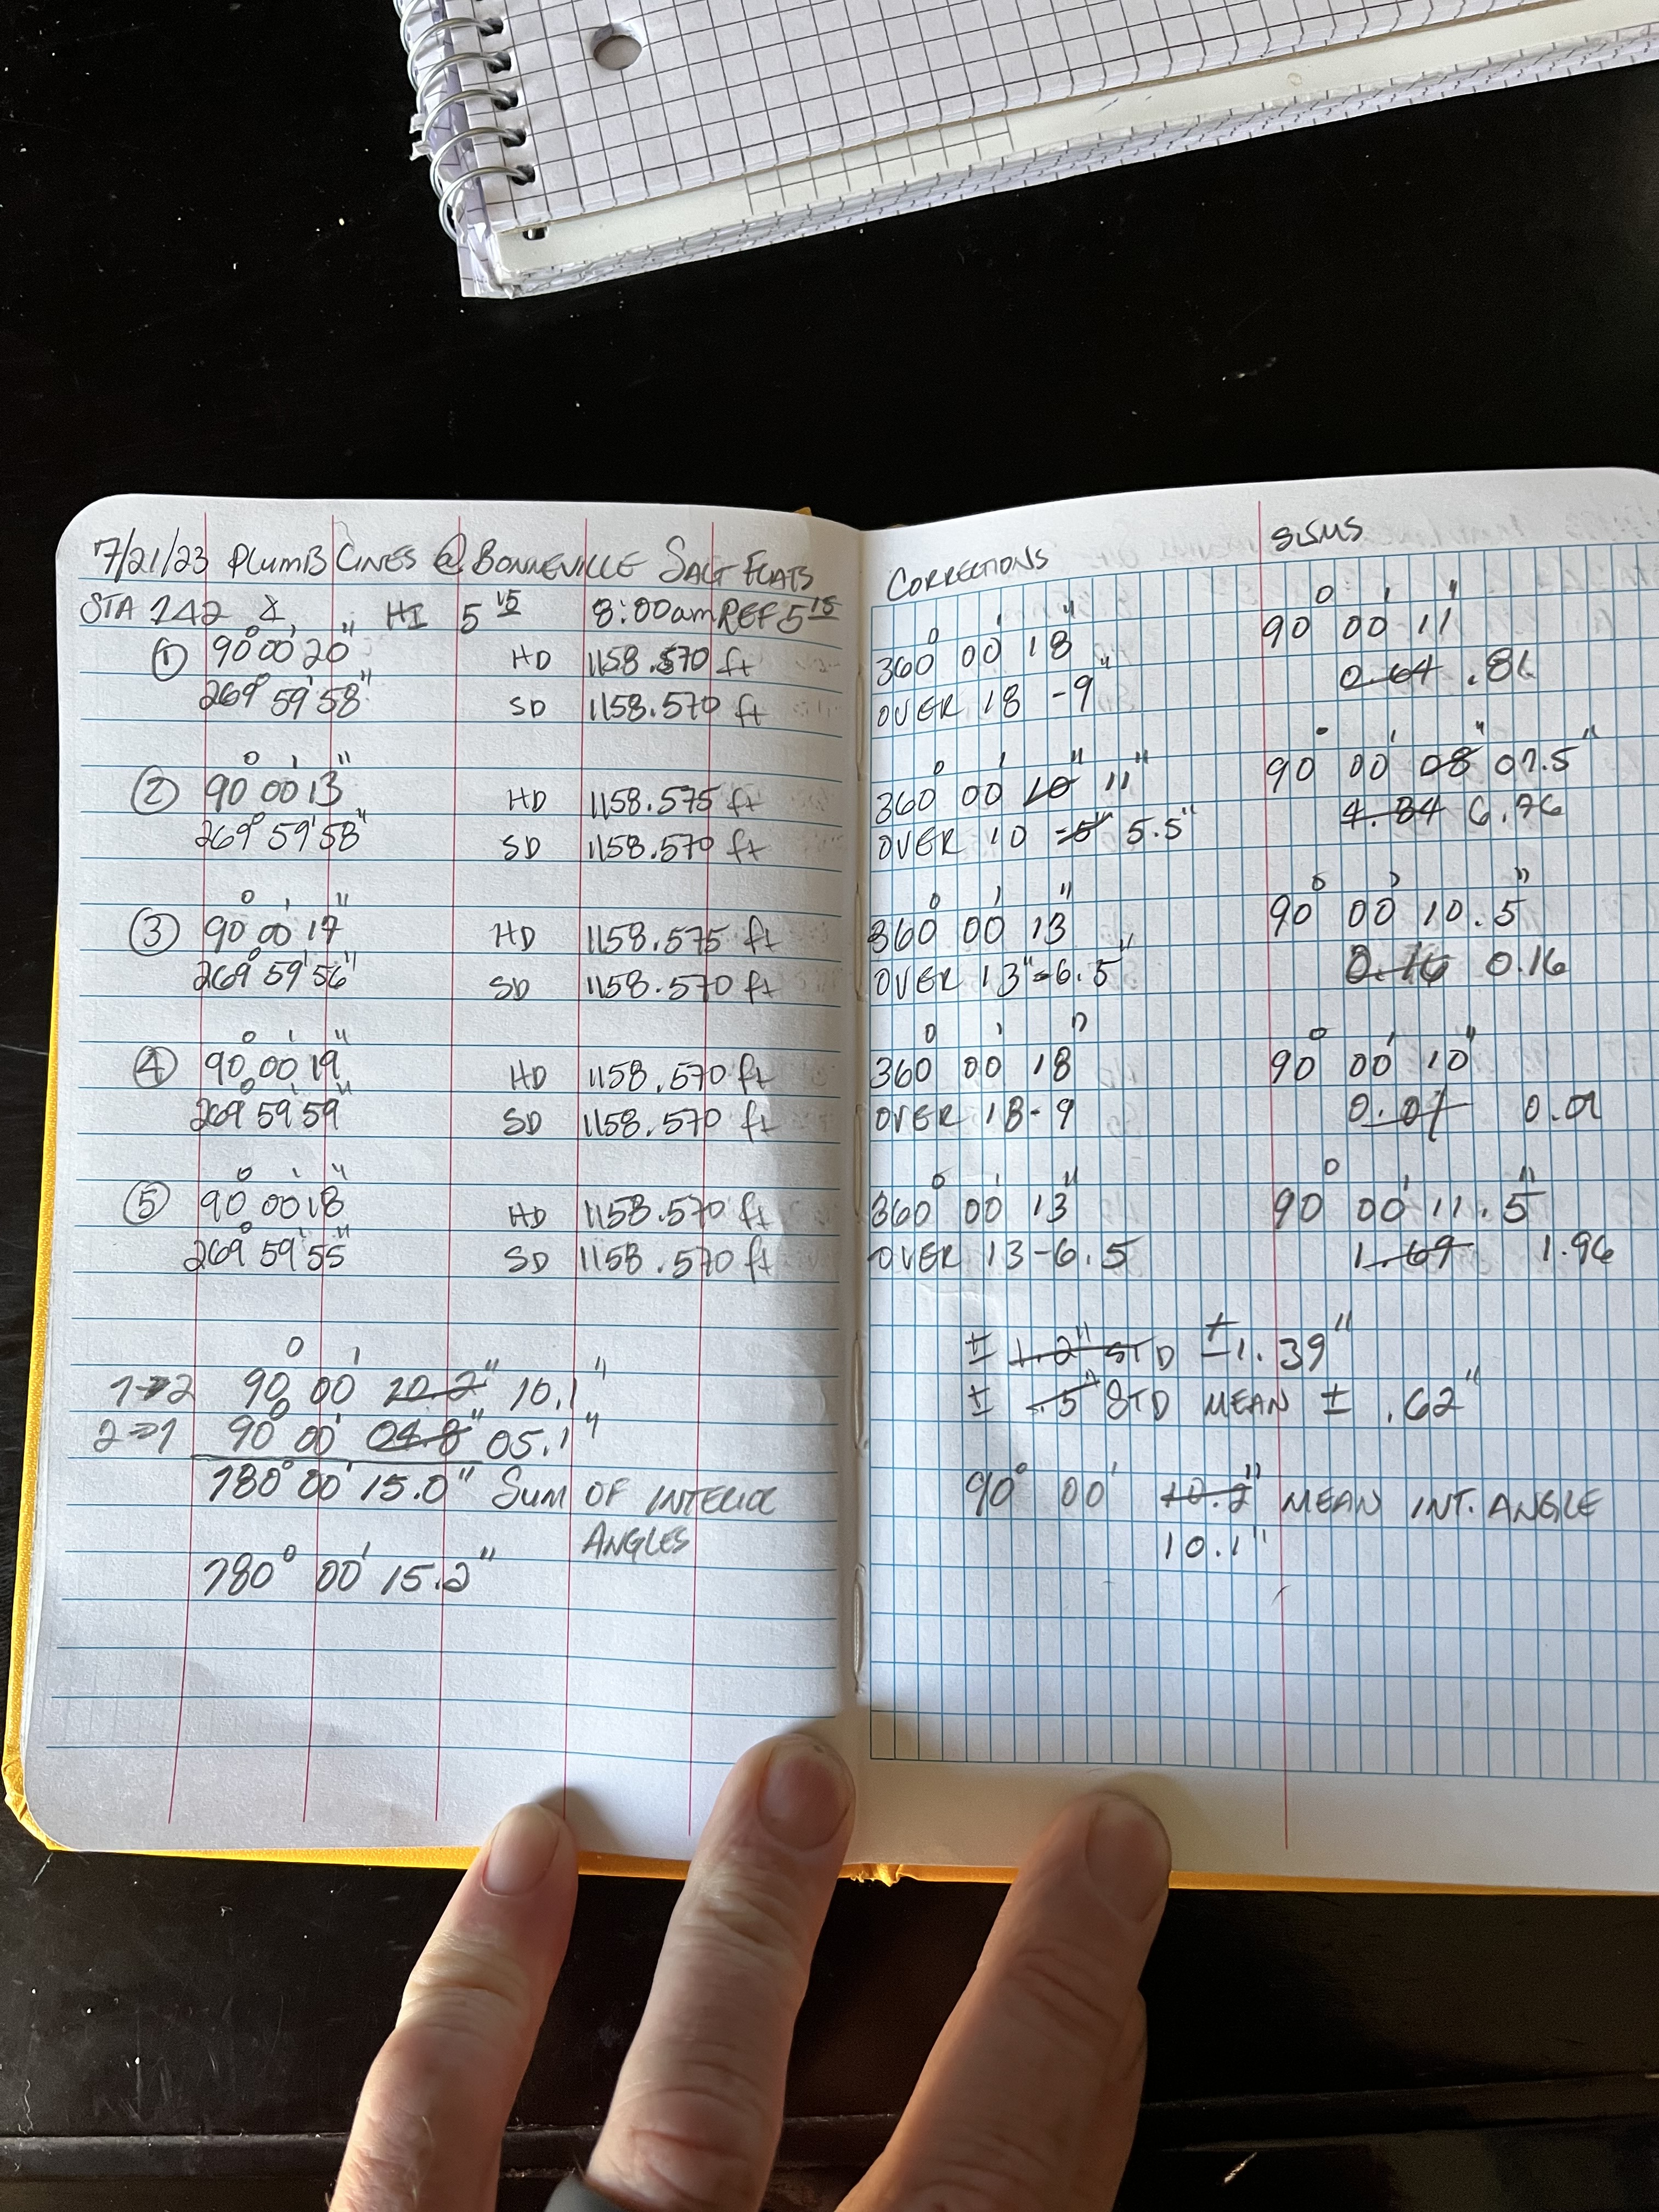 7/21/23 PLUMB LINES @ BONNEVILLE SALT FLATS
STA 142 HI 5 15 8:00am REF 5 15
① 90° 00' 20" HD 1158.570 ft
269° 59' 58" SD 1158.570 ft
② 90° 00' 13" HD 1158.575 ft
269° 59' 58" SD 1158.570 ft
③ 90° 00' 17" HD 1158.575 ft
269° 59' 56" SD 1158.570 ft
④ 90° 00' 19" HD 1158.570 ft
269° 59' 59" SD 1158.570 ft
⑤ 90° 00' 18" HD 1158.570 ft
269° 59' 55" SD 1158.570 ft
1→2 90° 00' 10.2" 10.1"
2→1 90° 00' 04.8" 05.1"
180° 00' 15.0" SUM OF INTERIOR
ANGLES
180° 00' 15.2"
CORRECTIONS
360° 00' 18"
OVER 18 -9"
360° 00' 10" 11"
OVER 10 -5" 5.5"
360° 00' 13"
OVER 13"-6.5"
360° 00' 18"
OVER 18-9
360° 00' 13"
OVER 13-6.5
90° 00' 11"
0.64 .81
90° 00' 08" 07.5"
4.84 6.76
90° 00' 10.5"
0.16 0.16
90° 00' 10"
0.01
90° 00' 11.5"
1.69 1.96
± 1.2" STD ±1.39"
± .5" STD MEAN ± .62"
90° 00' 10.2" MEAN INT. ANGLE
10.1"